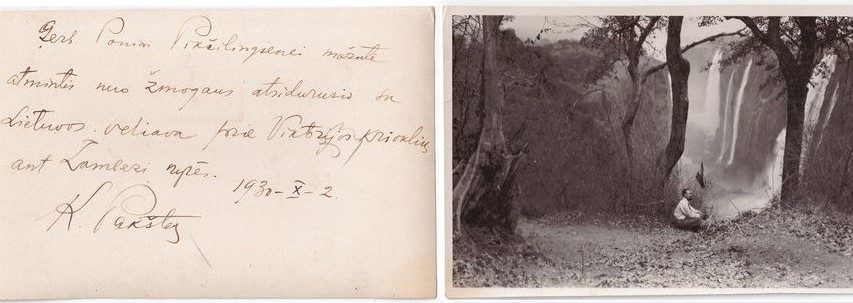 Gerb Poniai Pikčilingienei mažutė
atmintis nuo žmogaus atsidurusio su
Lietuvos vėliava prie Viktorijos krioklių
ant Zambezi upės. 1930-X-2.
K. Pakštas